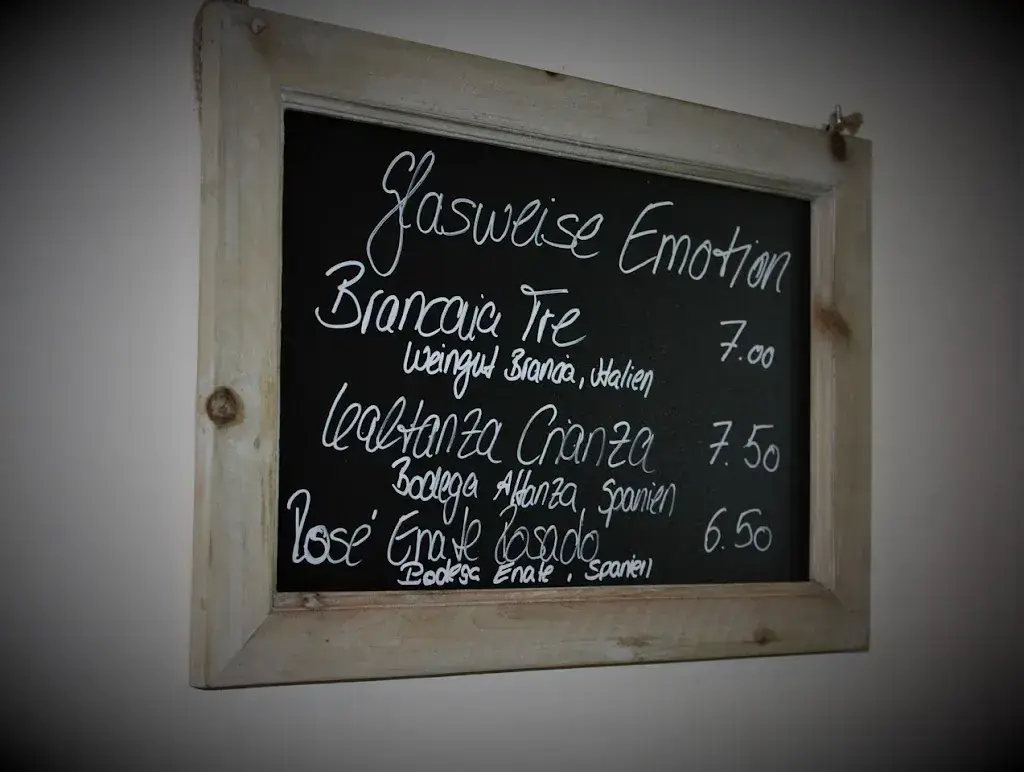 Glasweise Emotion
Brancaia Tre 7.00
Weingut Brancia, Italien
Lealtanza Crianza 7.50
Bodega Altanza, Spanien
Rosé Enate Rosado 6.50
Bodega Enate, Spanien